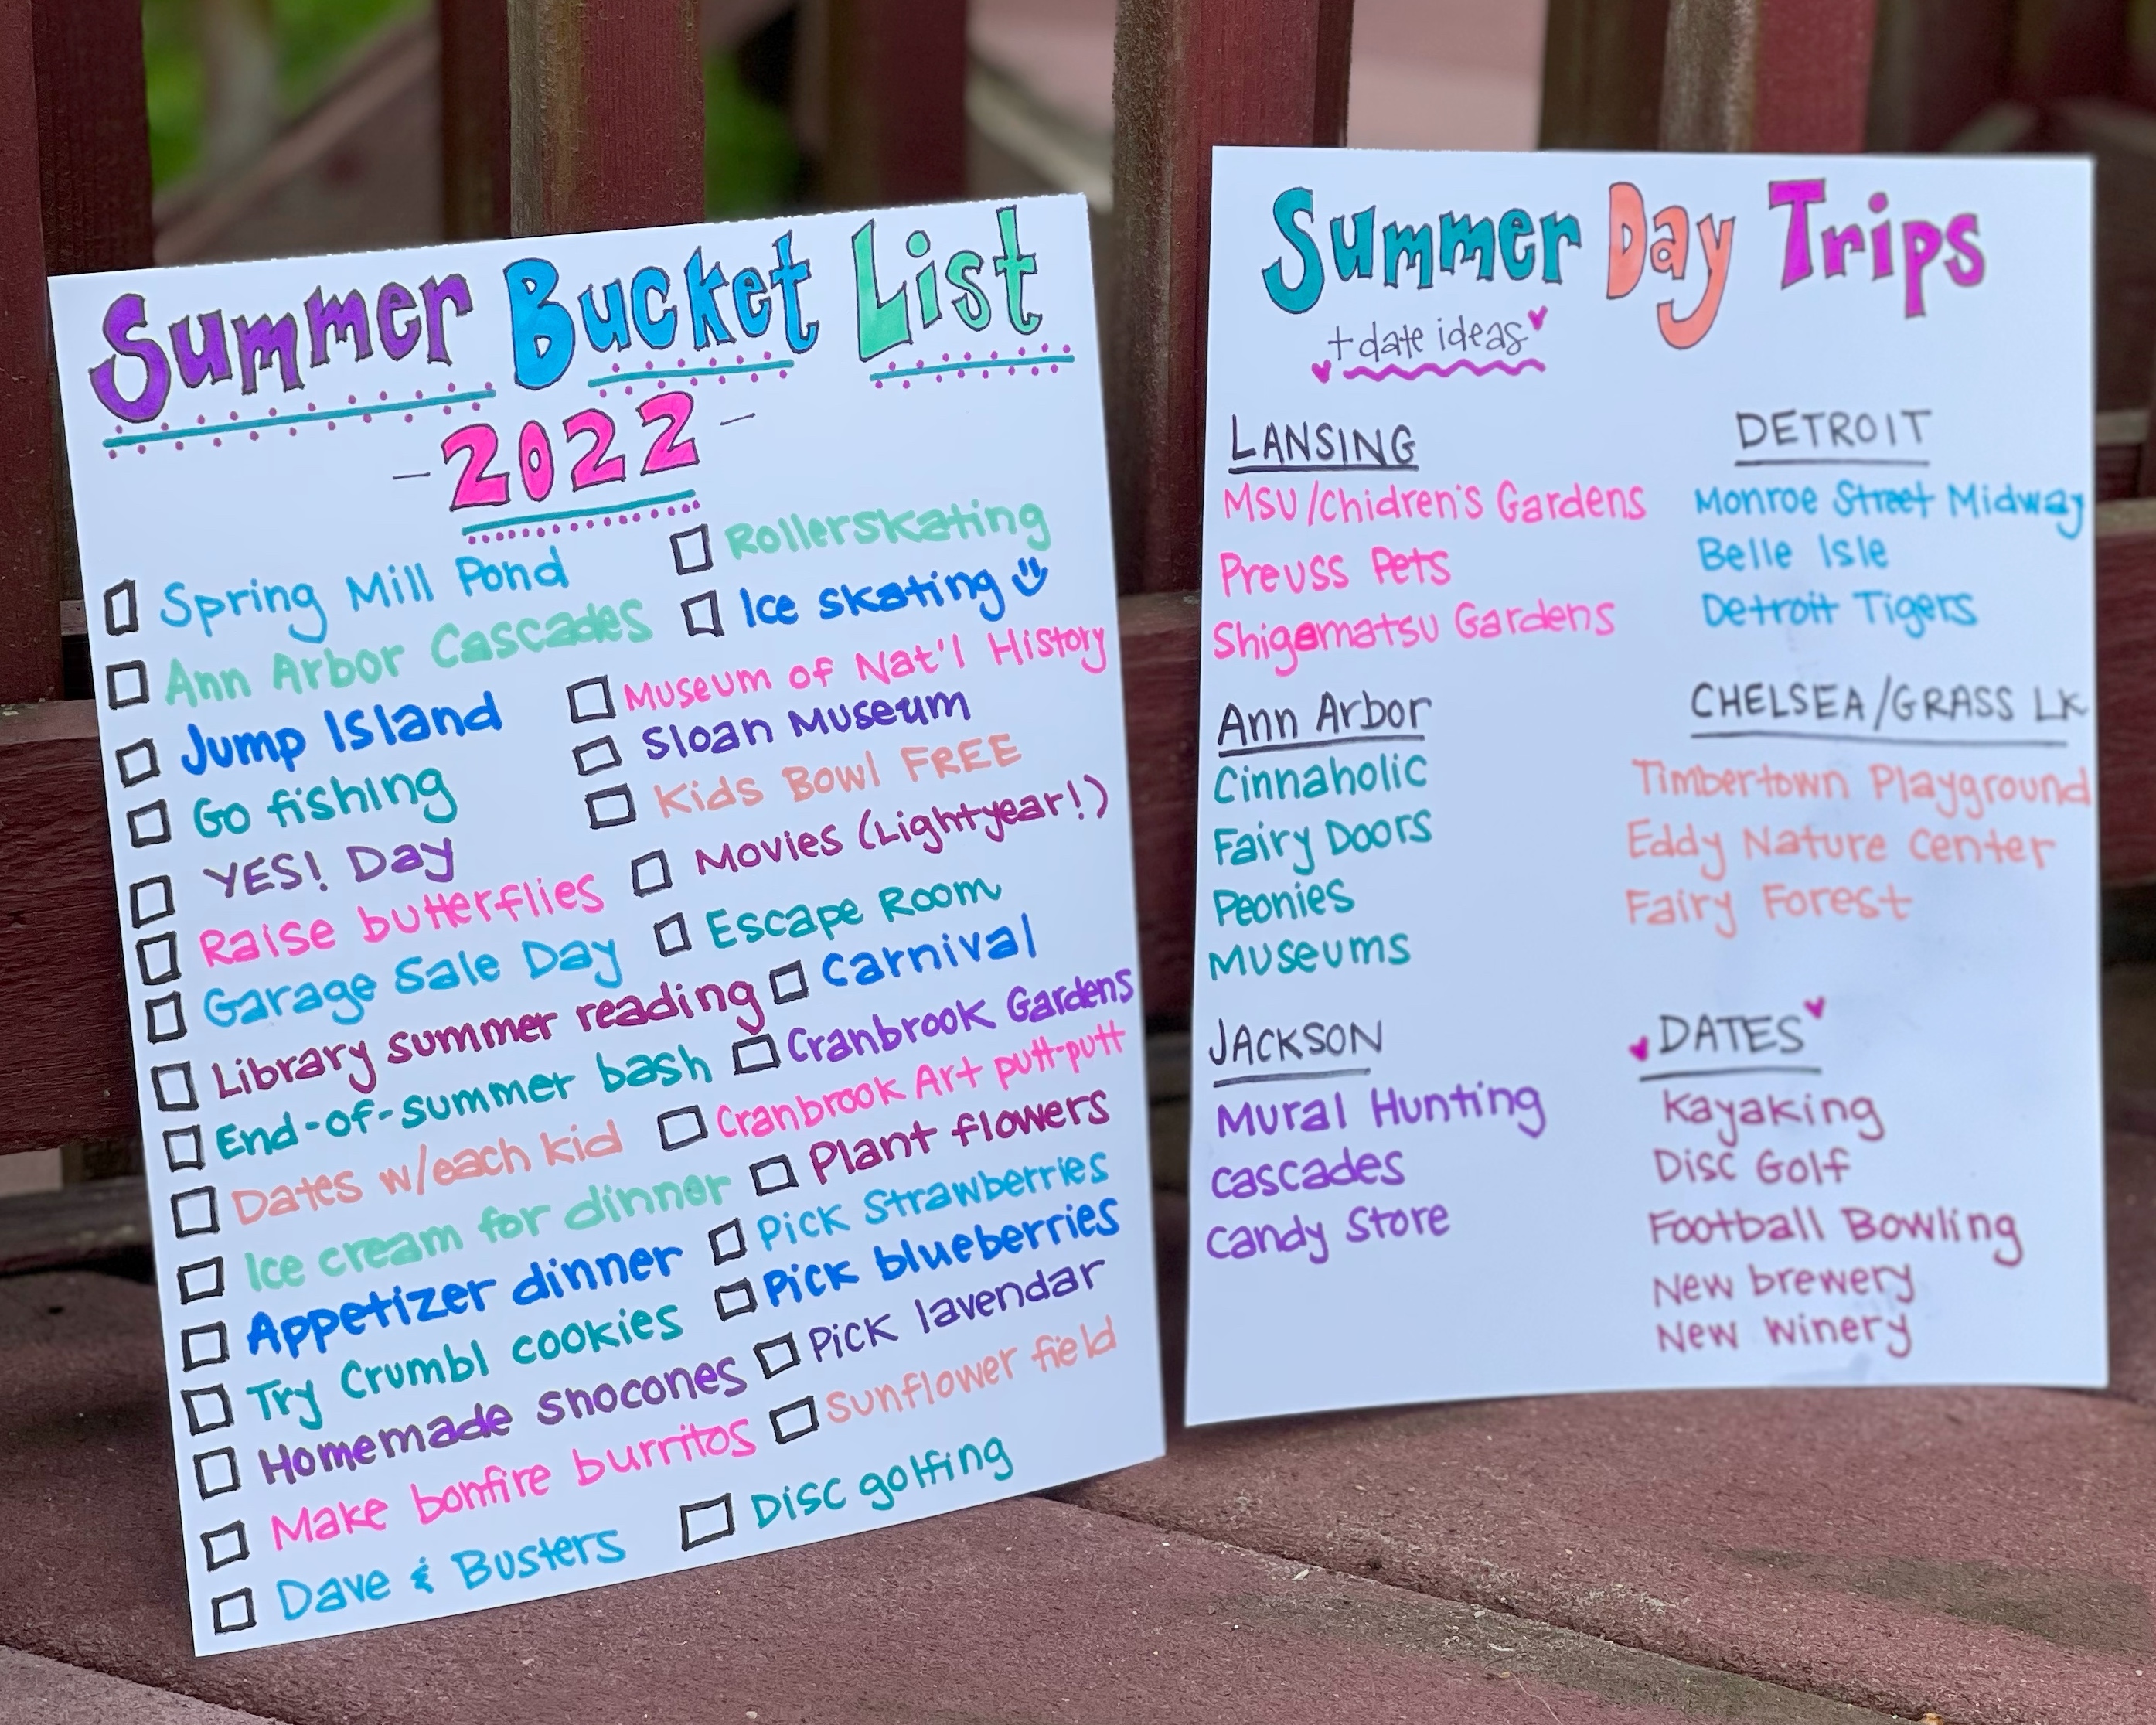 Summer Bucket List
-2022-
Spring Mill Pond
Ann Arbor Cascades
Jump Island
Go fishing
YES! Day
Raise butterflies
Garage Sale Day
Library summer reading
End-of-summer bash
Dates w/each kid
Ice cream for dinner
Appetizer dinner
Try Crumbl cookies
Homemade snocones
Make bonfire burritos
Dave & Busters
Rollerskating
Ice skating
Museum of Nat'l History
Sloan Museum
Kids Bowl FREE
Movies (Lightyear!)
Escape Room
Carnival
Cranbrook Gardens
Cranbrook Art putt-putt
Plant flowers
Pick Strawberries
Pick blueberries
Pick lavendar
Sunflower field
Disc golfing
Summer Day Trips
+date ideas
LANSING
MSU/Chidren's Gardens
Preuss Pets
Shigematsu Gardens
Ann Arbor
Cinnaholic
Fairy Doors
Peonies
Museums
JACKSON
Mural Hunting
Cascades
Candy Store
DETROIT
Monroe Street Midway
Belle Isle
Detroit Tigers
CHELSEA/GRASS LK
Timbertown Playground
Eddy Nature Center
Fairy Forest
DATES
Kayaking
Disc Golf
Football Bowling
New brewery
New winery